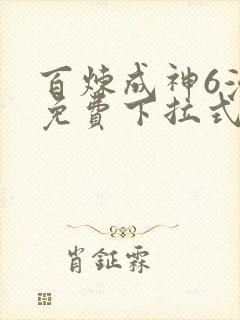 百炼成神6
免費下拉式
肖鉦霖